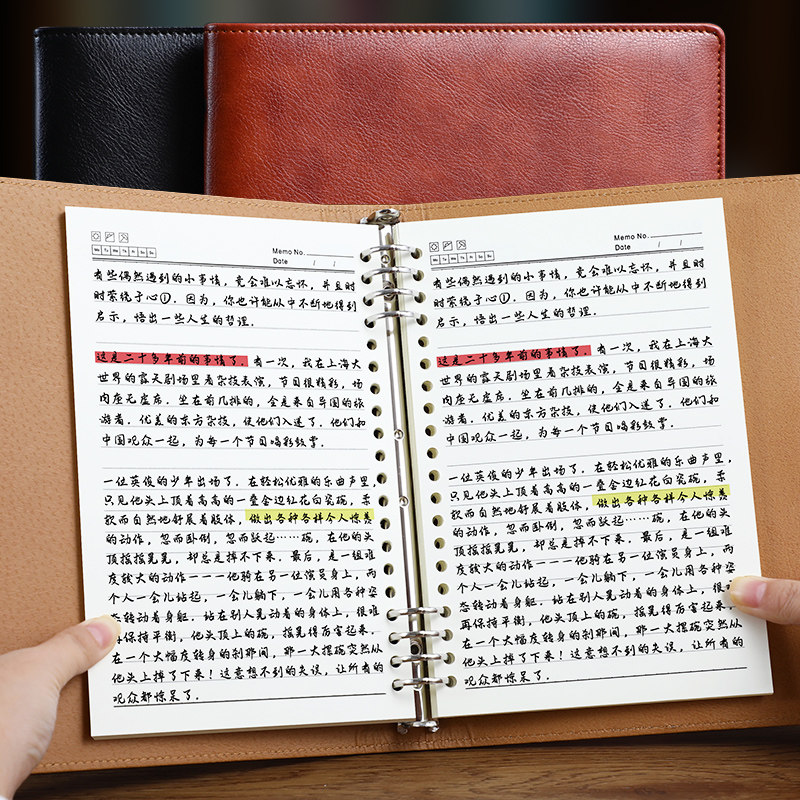 Memo No.
Mo Tu We Th Fr Sa Su
Date / /
有些偶然遇到的小事情，竟会难以忘怀，并且时
时萦绕于心①．因为，你也许能从中不断地得到
启示，悟出一些人生的哲理．
这是二十多年前的事情了．有一次，我在上海大
世界的露天剧场里看杂技表演，节目很精彩，场
内座无虚席．坐在前几排的，全是来自异国的旅
游者．优美的东方杂技，使他们入迷了．他们和
中国观众一起，为每一个节目喝彩鼓掌．
一位英俊的少年出场了．在轻松优雅的乐曲声里，
只见他头上顶着高高的一叠金边红花白瓷碗，柔
软而自然地舒展着肢体，做出各种各样令人惊羡
的动作，忽而卧倒，忽而跃起……碗，在他的头
顶摇摇晃晃，却总是掉不下来．最后，是一组难
度较大的动作————他骑在另一位演员身上，两
个人一会儿站起，一会儿躺下，一会儿用各种姿
态转动着身躯．站在别人晃动着的身体上，很难
再保持平衡，他头顶上的碗，摇晃得厉害起来．
在一个大幅度转身的刹那间，那一大摞碗突然从
他头上掉了下来！这意想不到的失误，让所有的
观众都惊呆了．
Memo No.
Mo Tu We Th Fr Sa Su
Date / /
有些偶然遇到的小事情，竟会难以忘怀，并且时
时萦绕于心①．因为，你也许能从中不断地得到
启示，悟出一些人生的哲理．
这是二十多年前的事情了．有一次，我在上海大
世界的露天剧场里看杂技表演，节目很精彩，场
内座无虚席．坐在前几排的，全是来自异国的旅
游者．优美的东方杂技，使他们入迷了．他们和
中国观众一起，为每一个节目喝彩鼓掌．
一位英俊的少年出场了．在轻松优雅的乐曲声里，
只见他头上顶着高高的一叠金边红花白瓷碗，柔
软而自然地舒展着肢体，做出各种各样令人惊羡
的动作，忽而卧倒，忽而跃起……碗，在他的头
顶摇摇晃晃，却总是掉不下来．最后，是一组难
度较大的动作————他骑在另一位演员身上，两
个人一会儿站起，一会儿躺下，一会儿用各种姿
态转动着身躯．站在别人晃动着的身体上，很难
再保持平衡，他头顶上的碗，摇晃得厉害起来．
在一个大幅度转身的刹那间，那一大摞碗突然从
他头上掉了下来！这意想不到的失误，让所有的
观众都惊呆了．